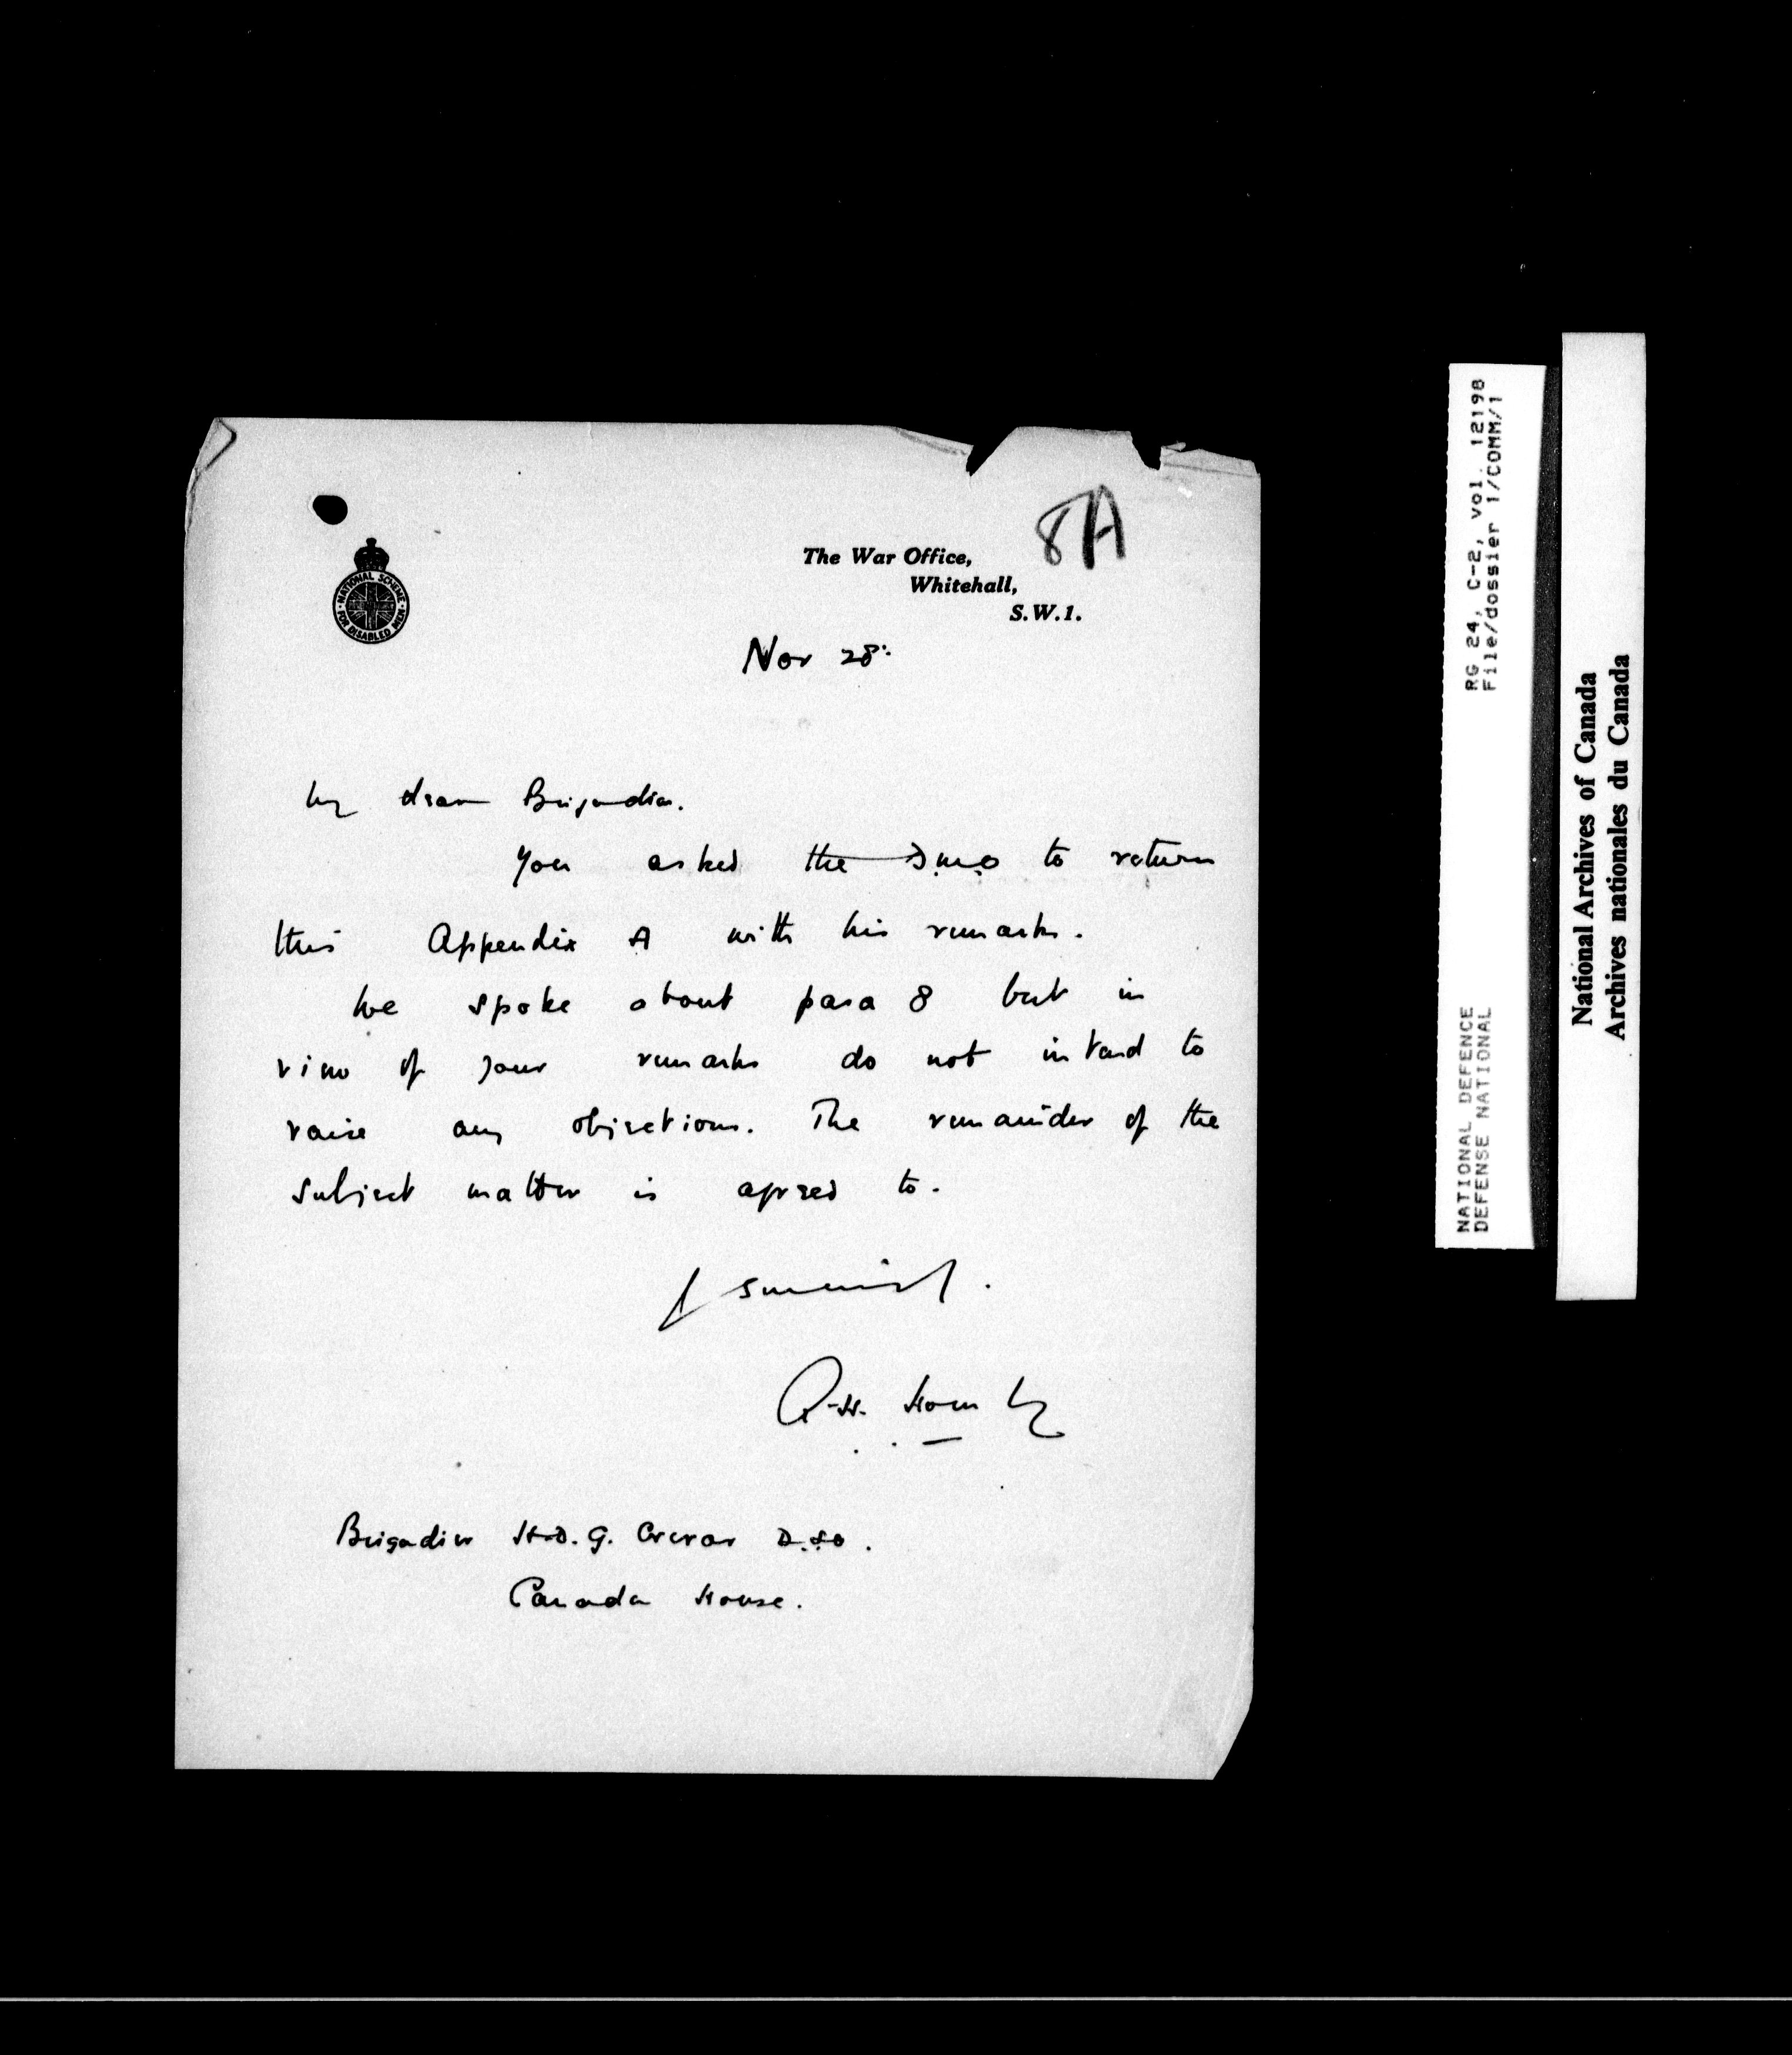 8A
The War Office,
Whitehall,
S.W.1.
NATIONAL SCHEME
FOR DISABLED MEN
Nov 28:
My dear Brigadier.
You asked the D.M.O to return
this Appendix A with his remarks.
We spoke about para 8 but in
view of your remarks do not intend to
raise any objections. The remainder of the
subject matter is agreed to.
Brigadier H.D.G. Crerar D.S.O.
Canada House.
RG 24, C-2, vol. 12198
File/dossier 1/COMM/1
NATIONAL DEFENCE
DEFENSE NATIONAL
National Archives of Canada
Archives nationales du Canada